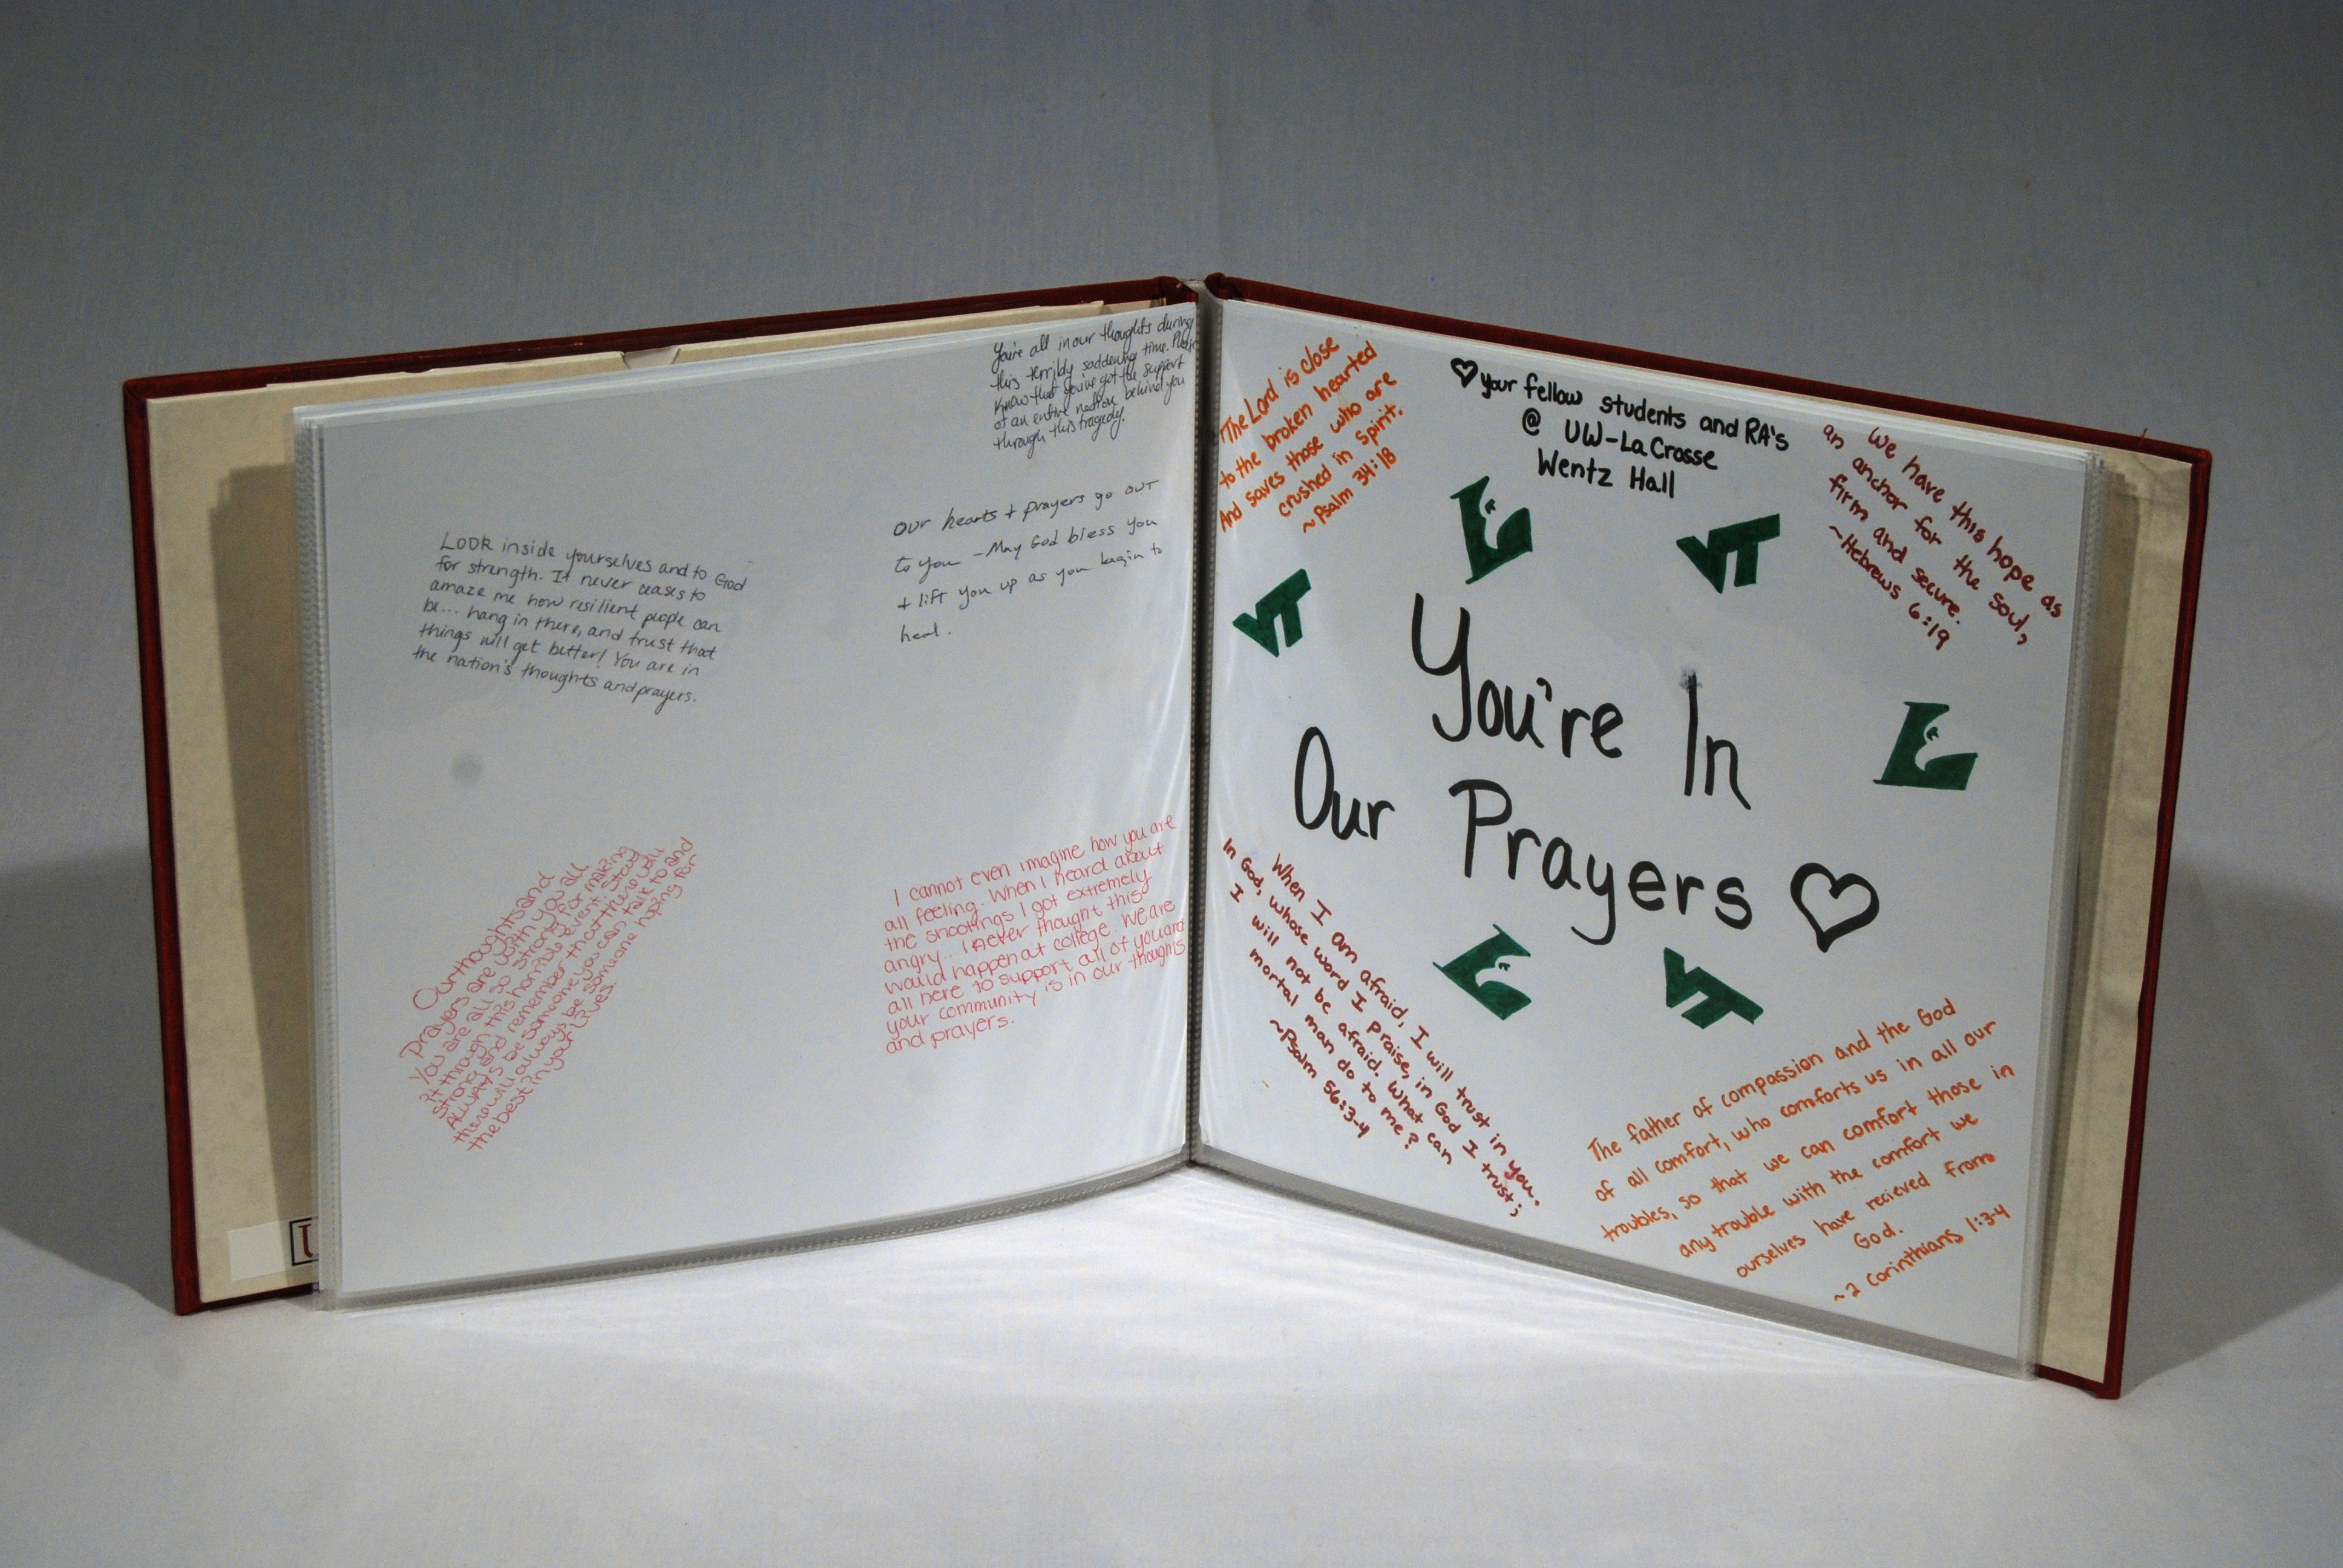 You're all in our thoughts during
this terribly saddening time. Please
know that you've got the support
of an entire nation behind you
through this tragedy.
Look inside yourselves and to God
for strength. It never ceases to
amaze me how resilient people can
be... hang in there, and trust that
things will get better! You are in
the nation's thoughts and prayers.
Our hearts + prayers go out
to you - May God bless you
+ lift you up as you begin to
heal.
Our thoughts and
prayers are with you all
You are all so strong for making
it through this horrible event. Stay
strong and remember that there will
ALWAYS be someone you can talk to and
there will always be someone hoping for
the best in your lives!
I cannot even imagine how you are
all feeling. When I heard about
the shootings I got extremely
angry... I never thought this
would happen at college. We are
all here to support all of you and
your community is in our thoughts
and prayers.
U
The Lord is close
to the broken hearted
And saves those who are
crushed in spirit.
~Psalm 34:18
♡ your fellow students and RA's
@ UW-La Crosse
Wentz Hall
We have this hope as
an anchor for the soul,
firm and secure.
~Hebrews 6:19
L
VT
VT
L
You're In
Our Prayers ♡
L
VT
When I am afraid, I will trust in you.
In God, whose word I praise, in God I trust;
I will not be afraid. What can
mortal man do to me?
~Psalm 56:3-4
The father of compassion and the God
of all comfort, who comforts us in all our
troubles, so that we can comfort those in
any trouble with the comfort we
ourselves have recieved from
God.
~2 Corinthians 1:3-4